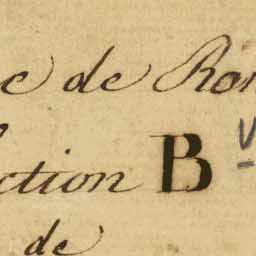 e de Ron
ction B V
de